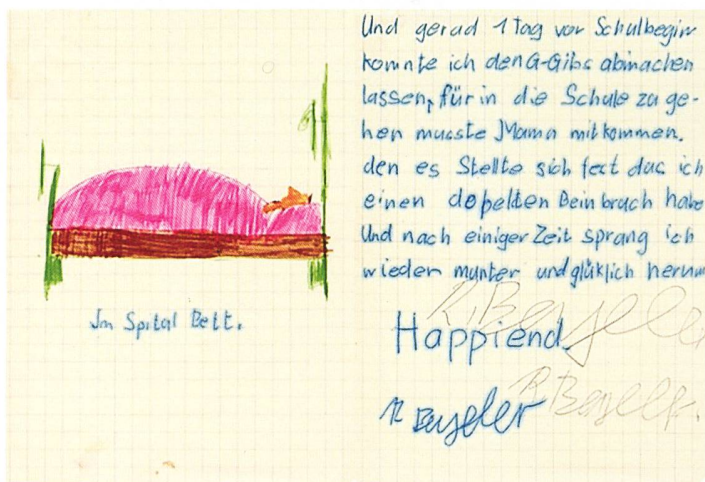 Und gerad 1 Tag vor Schulbegin
konnte ich den G-Gibs abmachen
lassen, für in die Schule zu ge-
hen musste Mama mitkommen.
den es Stellte sich fest das ich
einen dopelten Beinbruch habe
Und nach einiger Zeit sprang ich
wieder munter und glüklich herum
Im Spital Bett.
Happiend
R Beyeler